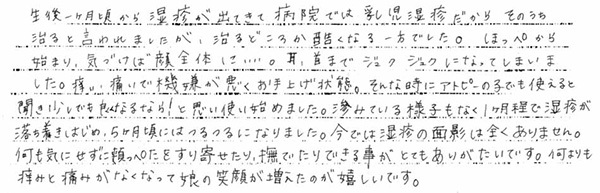 生後一ヶ月頃から湿疹が出てきて病院では乳児湿疹だからそのうち
治ると言われましたが、治るどころか酷くなる一方でした。ほっぺから
始まり、気づけば顔全体に……。耳、首までジュクジュクになってしまいま
した。痒い、痛いで機嫌が悪くお手上げ状態。そんな時にアトピーの子でも使えると
聞き少しでも良くなるなら!と思い使い始めました。滲みている様子もなく1ヶ月程で湿疹が
落ち着きはじめ、5ヶ月頃にはつるつるになりました。今では湿疹の面影は全くありません。
何も気にせずに頬っぺたをすり寄せたり、撫でたりできる事がとてもありがたいです。何よりも
痒みと痛みがなくなって娘の笑顔が増えたのが嬉しいです。